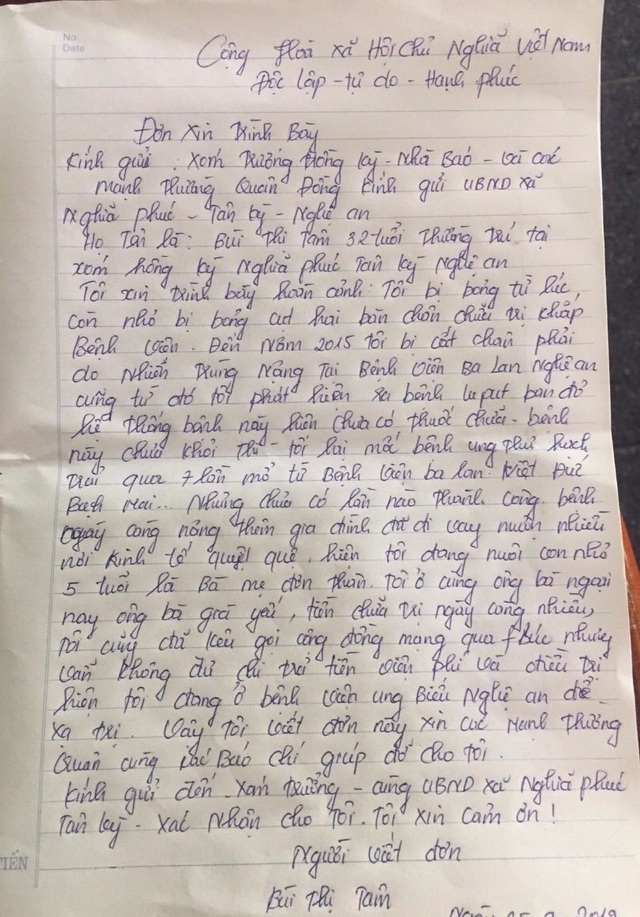 No.
Date
Cộng Hoà Xã Hội Chủ Nghĩa Việt Nam
Độc lập - tự do - Hạnh phúc
Đơn Xin Trình Bày
Kính gửi : Xóm Trưởng Đồng kỳ - Nhà Báo - và các
mạnh Thường Quân Đồng kính gửi UBND xã
Nghĩa phúc - Tân kỳ - Nghệ an
Họ Tên là : Bùi Thị Tâm 32 tuổi Thường Trú tại
xóm hồng kỳ Nghĩa phúc Tân kỳ Nghệ an
Tôi xin trình bày hoàn cảnh : Tôi bị bỏng từ lúc
còn nhỏ bị bỏng cụt hai bàn chân chữa trị khắp
Bệnh viện. Đến năm 2015 tôi bị cắt chân phải
do Nhiễm Trùng Nặng Tại Bệnh viện Ba Lan Nghệ an
cũng từ đó tôi phát hiện ra bệnh luput ban đỏ
hệ thống bệnh này hiện chưa có thuốc chữa - bệnh
này chưa khỏi thì - tôi lại mắc bệnh ung thư hạch
Trải qua 7 lần mổ từ Bệnh viện ba lan. Việt Đức
Bạch Mai... Nhưng chưa có lần nào thành công. bệnh
ngày càng nặng thêm gia đình đã đi vay mượn nhiều
nơi kinh tế quyệt quệ, hiện tôi đang nuôi con nhỏ
5 tuổi là Bà mẹ đơn thân. Tôi ở cùng ông bà ngoại
nay ông bà già yếu, tiền chữa trị ngày càng nhiều,
Tôi cũng đã kêu gọi cộng đồng mạng qua nhưng
vẫn không đủ chi trả tiền viện phí và điều trị
hiện tôi đang ở bệnh viện ung Biếu Nghệ an để
xạ trị. Vậy tôi viết đơn này xin các Mạnh Thường
Quân cùng các Báo chí giúp đỡ cho tôi.
Kính gửi đến - Xóm Trưởng - cùng UBND xã Nghĩa phúc
Tân kỳ - Xác Nhận cho Tôi. Tôi Xin Cảm ơn !
Người viết đơn
Bùi Thị Tâm
TIẾN